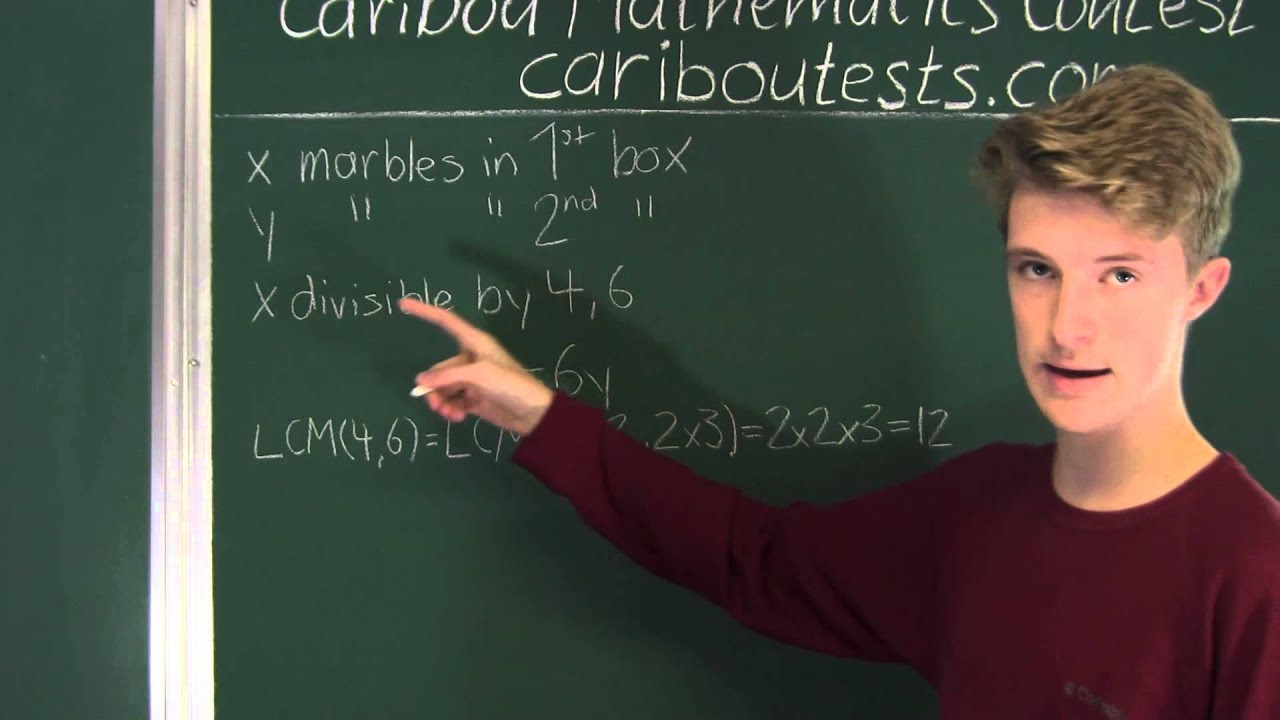 Caribou Mathematics Contest
cariboutests.com
x marbles in 1st box
y " " 2nd "
x divisible by 4,6
=6y
LCM(4,6)=LC 2x3)=2x2x3=12